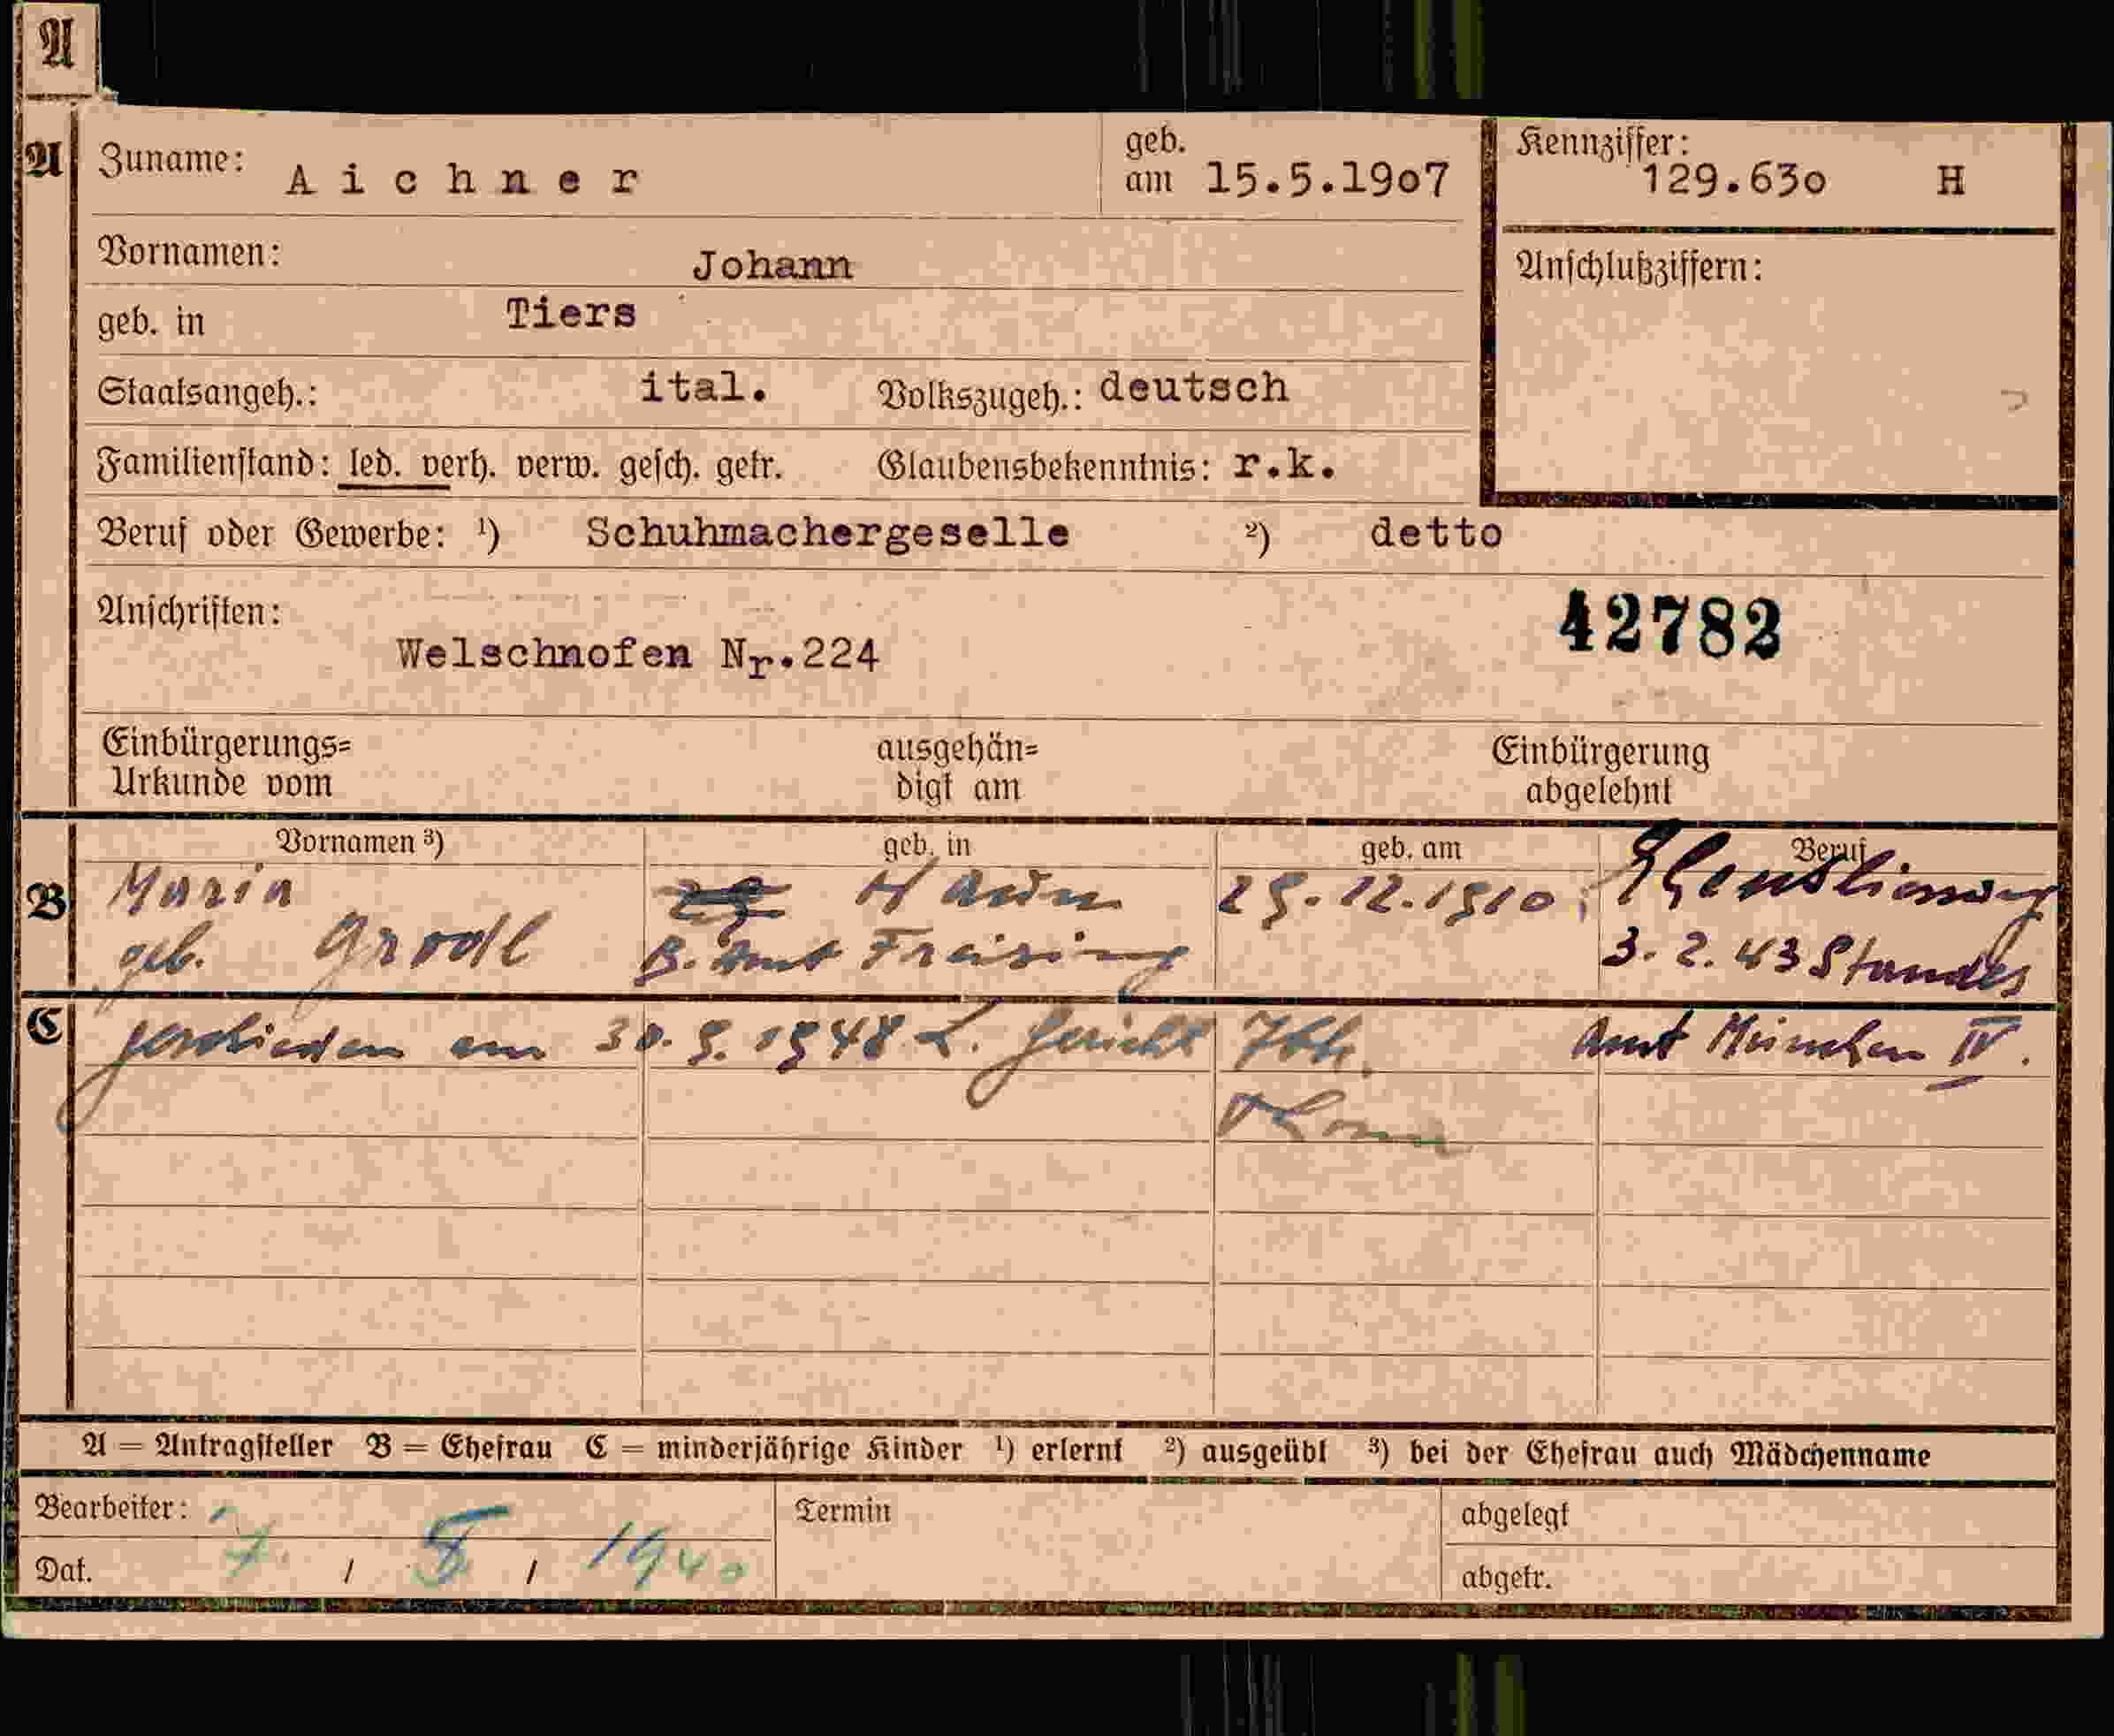 A
A
Zuname: Aichner
geb. am 15.5.1907
Kennziffer: 129.630 H
Vornamen: Johann
Anschlußziffern:
geb. in Tiers
Staatsangeh.: ital. Volkszugeh.: deutsch
Familienstand: led. verh. verw. gesch. getr. Glaubensbekenntnis: r.k.
Beruf oder Gewerbe: ¹) Schuhmachergeselle ²) detto
Anschriften:
Welschnofen Nr.224
42782
Einbürgerungs=
Urkunde vom
ausgehän=
digt am
Einbürgerung
abgelehnt
B
Vornamen ³) geb. in geb. am Beruf
Maria Haun 29.12.1910 Eheschliessung
geb. Grodl B. Amt Freising 3.2.43 Standes
C
geschieden am 30.9.1948 L. Gericht Amt München IV.
A = Antragsteller B = Ehefrau C = minderjährige Kinder ¹) erlernt ²) ausgeübt ³) bei der Ehefrau auch Mädchenname
Bearbeiter:
Termin
abgelegt
Dat. 7. / X / 1940
abgetr.